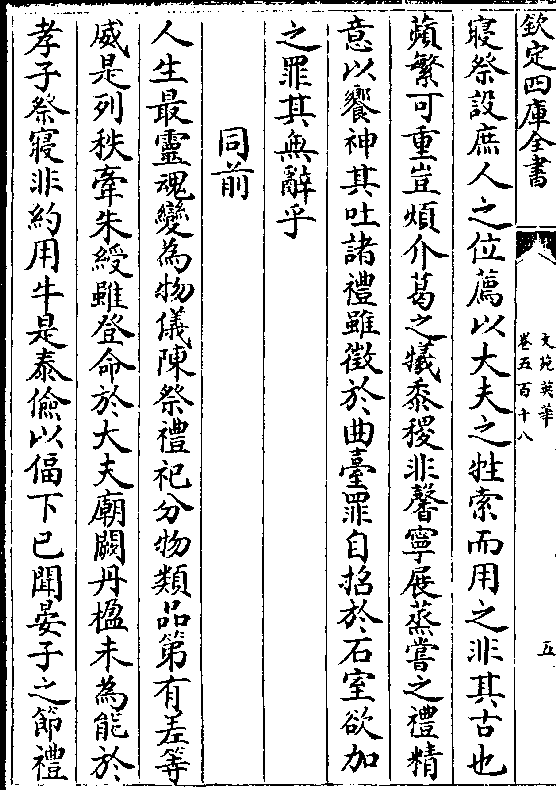 欽定四庫全書
文苑英華
卷五百十八
五
寝祭設庶人之位薦以大夫之牲索而用之非其古也
蘋繁可重豈煩介葛之犧黍稷非馨寧展蒸嘗之禮精
意以饗神其吐諸禮雖徵於曲臺罪自招於石室欲加
之罪其無辭乎
同前
人生最靈魂變為物儀陳祭禮祀分物類品第有差等
威是列秩牽朱綬雖登命於大夫廟闕丹楹未為能於
孝子祭寢非約用牛是泰儉以偪下已聞晏子之節禮